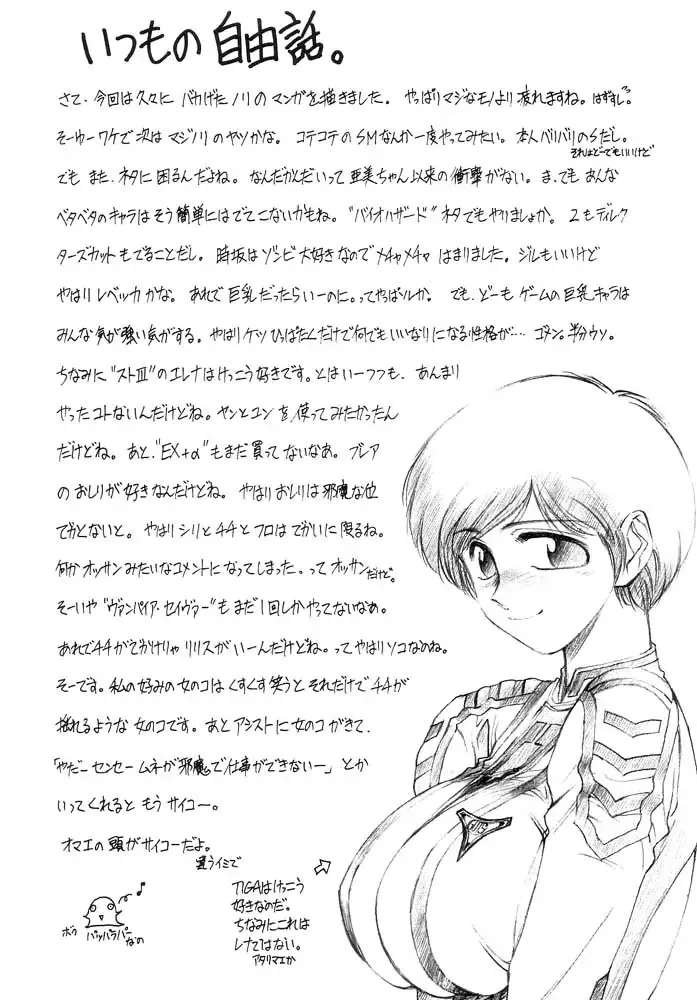 いつもの自由話。
さて、今回は久々にバカげたノリのマンガを描きました。やっぱりマジなモノより疲れますね。はずすし。
そーゆーワケで次はマジノリのヤツかな。コテコテのSMなんか一度やってみたい。本人バリバリのSだし。
それはどーでもいいけど
でもまた、ネタに困るんだよね。なんだかんだいって亜美ちゃん以来の衝撃がない。ま、でもあんな
ベタベタのキャラはそう簡単にはでてこないかもね。"バイオハザード"ネタでもやりましょか。2もディレク
ターズカットもでることだし。時坂はゾンビ大好きなのでメチャメチャはまりました。ジルもいいけど
やはりレベッカかな。あれで巨乳だったらいーのに。ってやっぱソレか。でも、どーもゲームの巨乳キャラは
みんな気が強い気がする。やはりケツひっぱたくだけで何でもいいなりになる性格が…ゴメン。半分ウソ。
ちなみに"ストⅢ"のエレナはけっこう好きです。とはいーつつも、あんまり
やったコトないんだけどね。ヤンとユンを使ってみたかったん
だけどね。あと、"EX+α"もまだ買ってないなあ。ブレア
のおしりが好きなんだけどね。やはりおしりは邪魔な位
でかとないと。やはりシリとチチとフロはでかいに限るね。
何かオッサンみたいなコメントになってしまった。ってオッサンだけど。
そーいや"ヴァンパイア・セイヴァー"もまだ1回しかやってないなあ。
あれでチチがでかけりゃリリスがいーんだけどね。ってやはりソコなのね。
そーです。私の好みの女のコはくすくす笑うとそれだけでチチが
揺れるような女のコです。あとアシストに女のコがきて、
「やだーセンセームネが邪魔で仕事ができないー」とか
いってくれるともうサイコー。
オマエの頭がサイコーだよ。
違うイミで
ボク パッパラパーなの
TIGAはけっこう
好きなのだ。
ちなみにこれは
レナではない。
アタリマエか